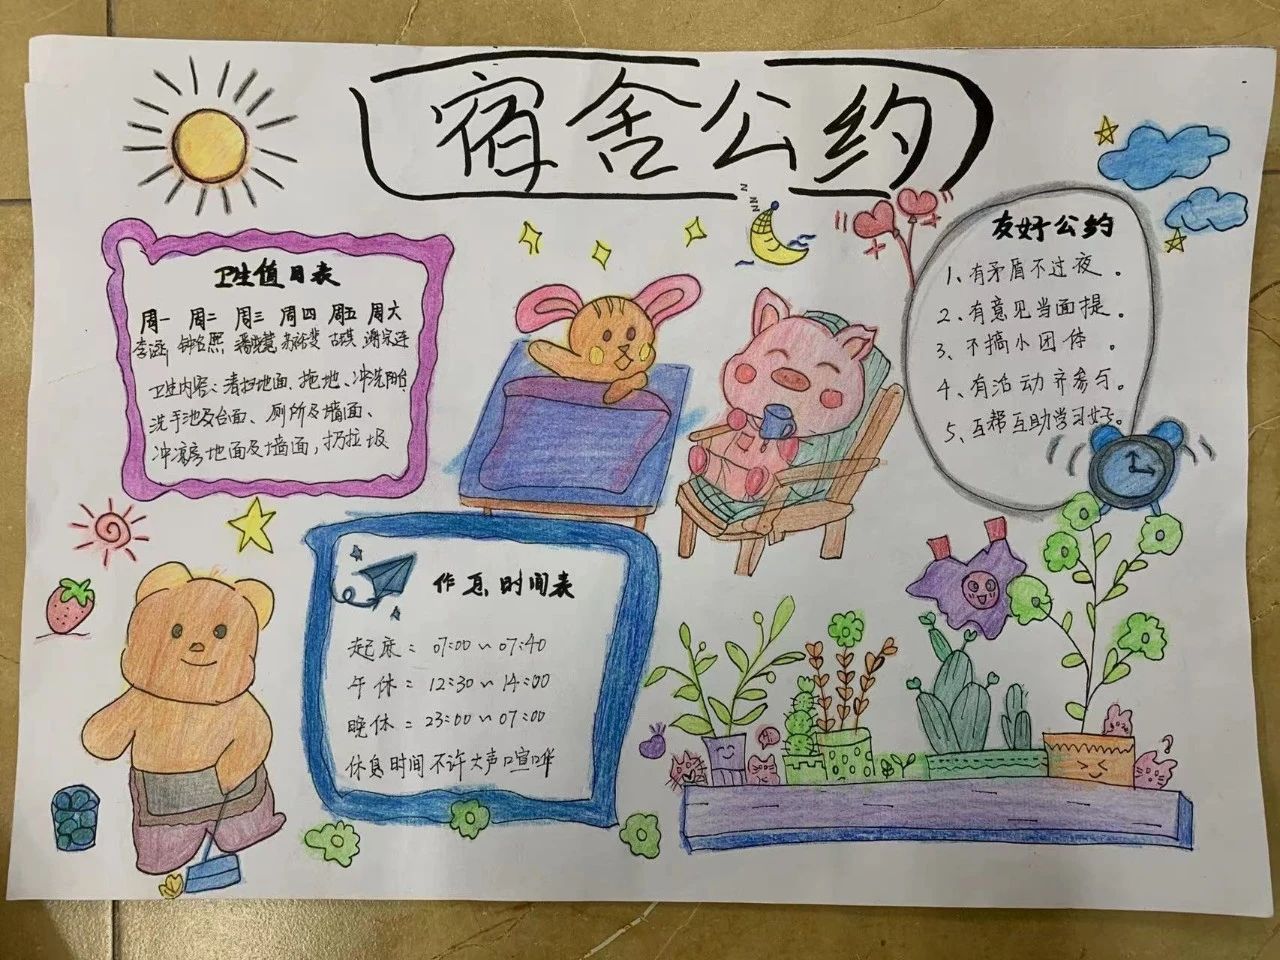 宿舍公约
卫生值日表
周一 周二 周三 周四 周五 周六
李涵 钟名熙
卫生内容：清扫地面、拖地、冲洗阳台
洗手池及台面、厕所及墙面、
冲凉房地面及墙面，扔垃圾
zzzz
友好公约
1、有矛盾不过夜。
2、有意见当面提。
3、不搞小团体。
4、有活动齐参与。
5、互帮互助学习好。
作息时间表
起床：07:00~07:40
午休：12:30~14:00
晚休：23:00~07:00
休息时间不许大声喧哗